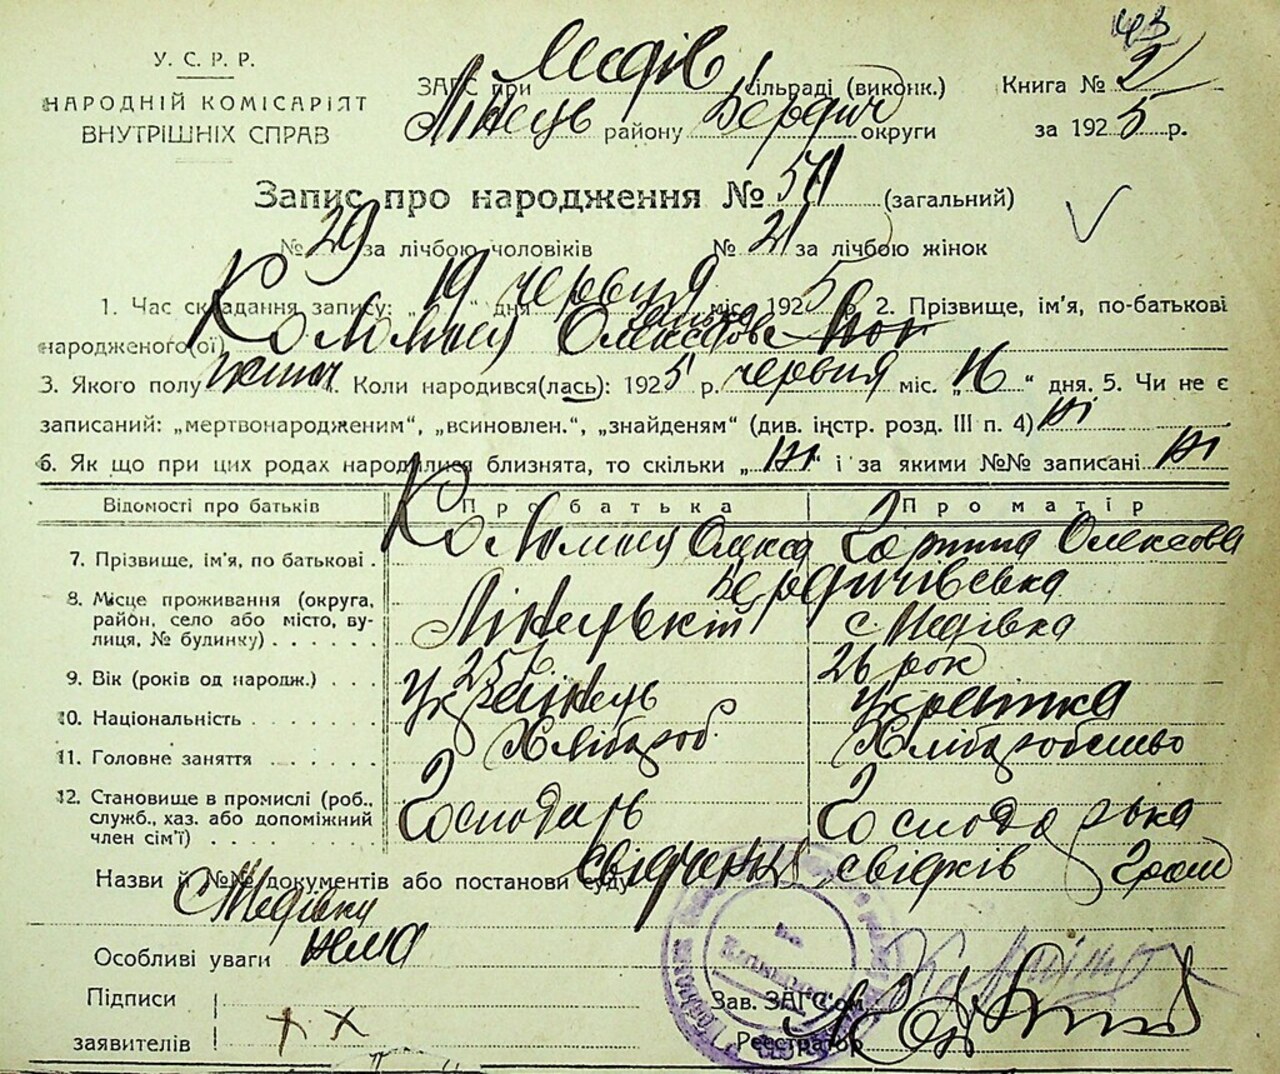 У. С. Р. Р.
НАРОДНІЙ КОМІСАРІЯТ
ВНУТРІШНІХ СПРАВ
ЗАГС при Медів сільраді (виконк.)
Лінець району Бердич округи
Книга № 2
за 1925 р.
Запис про народження № 51 (загальний)
№ 29 за лічбою чоловіків № 21 за лічбою жінок
1. Час складання запису: „19“ дня червня міс. 1925 р. 2. Прізвище, ім'я, по-батькові
народженого(ої) Коломиец
3. Якого полу жіноч. Коли народився(лась): 1925 р. червня міс. „16“ дня. 5. Чи не є
записаний: „мертвонародженим“, „всиновлен.“, „знайденям“ (див. інстр. розд. III п. 4) ні
6. Як що при цих родах народилися близнята, то скільки „ні“ і за якими №№ записані ні
Відомості про батьків Про батька Про матір
7. Прізвище, ім'я, по батькові . Олекса Олексовва
8. Місце проживання (округа, район, село або місто, вулиця, № будинку) . . . . . . Бердичівська
с. Медівка
9. Вік (років од народж.) . . . 25 26 рок
10. Національність . . . . . . . Українець Українка
11. Головне заняття . . . . . . Хлібороб. Хліборобство
12. Становище в промислі (роб., служб., хаз. або допоміжний член сім'ї) . . . . . . . . . Господарь Господарька
Назви й №№ документів або постанови суду свідчення свідків гром
с Медівки
Особливі уваги нема
Підписи
заявителів + х
Зав. ЗАГС'ом
Реєстратор